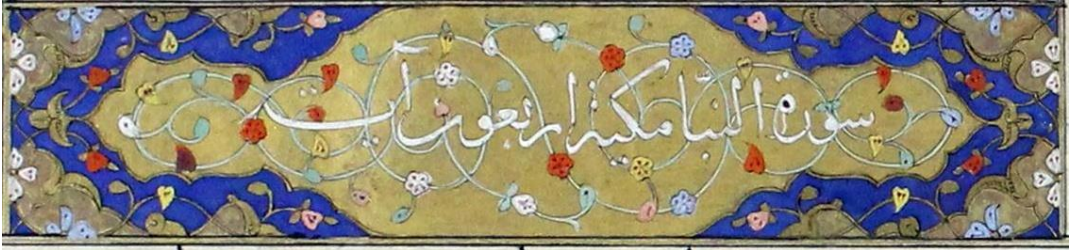 سورة النبا مكية اربعون آية